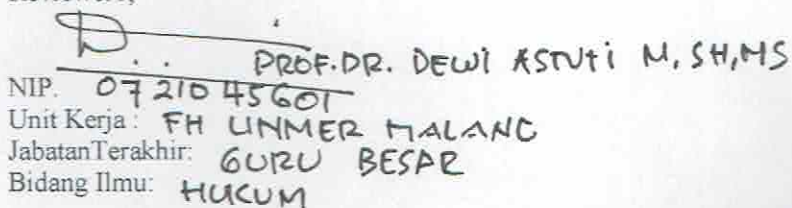 PROF.DR. DEWI ASTUTI M, SH,MS
NIP. 0721045601
Unit Kerja : FH UNMER MALANG
JabatanTerakhir: GURU BESAR
Bidang Ilmu: HUKUM